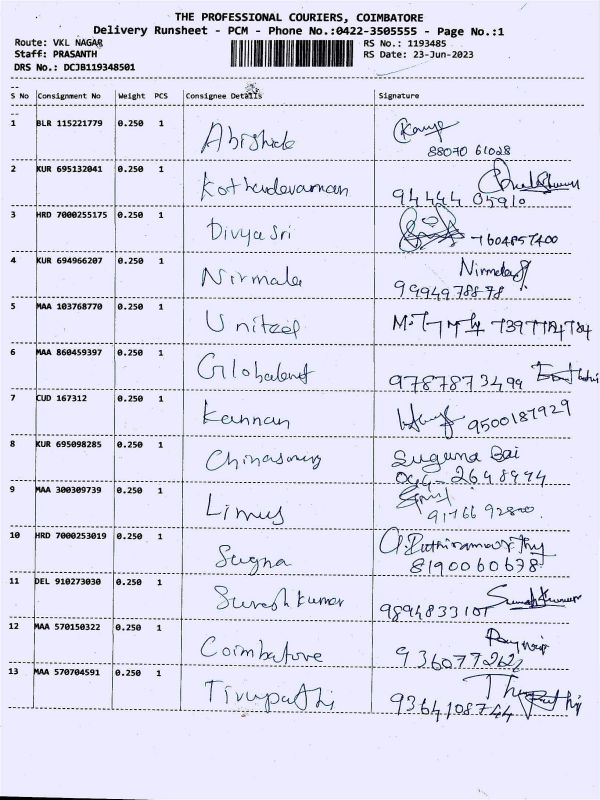 THE PROFESSIONAL COURIERS, COIMBATORE
Delivery Runsheet - PCM - Phone No.:0422-3505555 - Page No.:1
Route: VKL NAGAR RS No.: 1193485
Staff: PRASANTH RS Date: 23-Jun-2023
DRS No.: DCJB119348501
S No Consignment No Weight PCS Consignee Details Signature
1 BLR 115221779 0.250 1
88070 61028
2 KUR 695132041 0.250 1
94444 05910
3 HRD 7000255175 0.250 1 Divya Sri 7604857400
4 KUR 694966207 0.250 1 Nirmala Nirmala
9994978878
5 MAA 103768770 0.250 1 Unitzel
6 MAA 860459397 0.250 1
9787873499
7 CUD 167312 0.250 1 Kannan 9500187929
8 KUR 695098285 0.250 1 Suguna Bai
044-2648974
9 MAA 300309739 0.250 1
91766 92800
10 HRD 7000253019 0.250 1 Sugna
8190060678
11 DEL 910273030 0.250 1 Suresh kumar 9894833101
12 MAA 570150322 0.250 1 Coimbatore
13 MAA 570704591 0.250 1 Tirupathi
9364108744